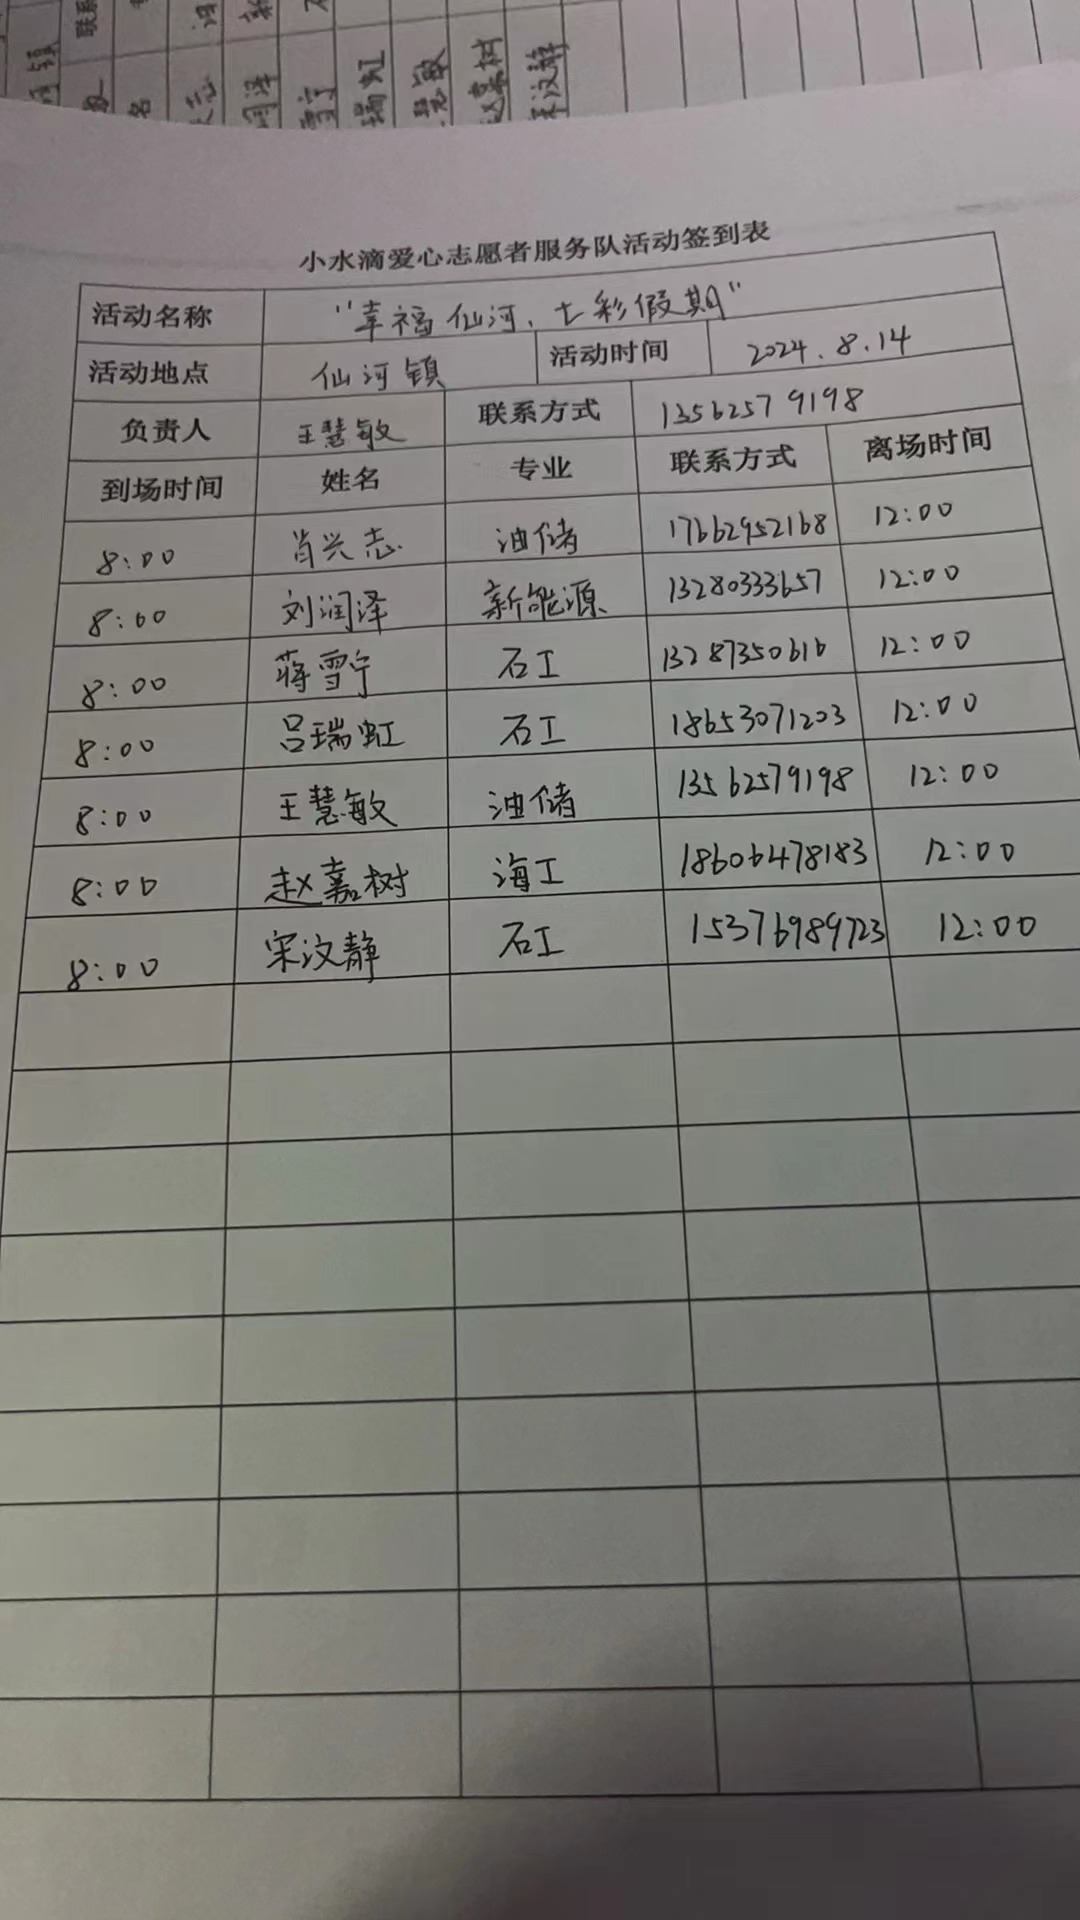 小水滴爱心志愿者服务队活动签到表
活动名称 "幸福仙河、七彩假期"
活动地点 仙河镇 活动时间 2024.8.14
负责人 王慧敏 联系方式 13562579198
到场时间 姓名 专业 联系方式 离场时间
8:00 肖兴志 油储 17662952168 12:00
8:00 刘润泽 新能源 13280333657 12:00
8:00 蒋雪宁 石工 13287350616 12:00
8:00 吕瑞虹 石工 18653071203 12:00
8:00 王慧敏 油储 13562579198 12:00
8:00 赵嘉树 海工 18606478183 12:00
8:00 宋汶静 石工 15376989723 12:00